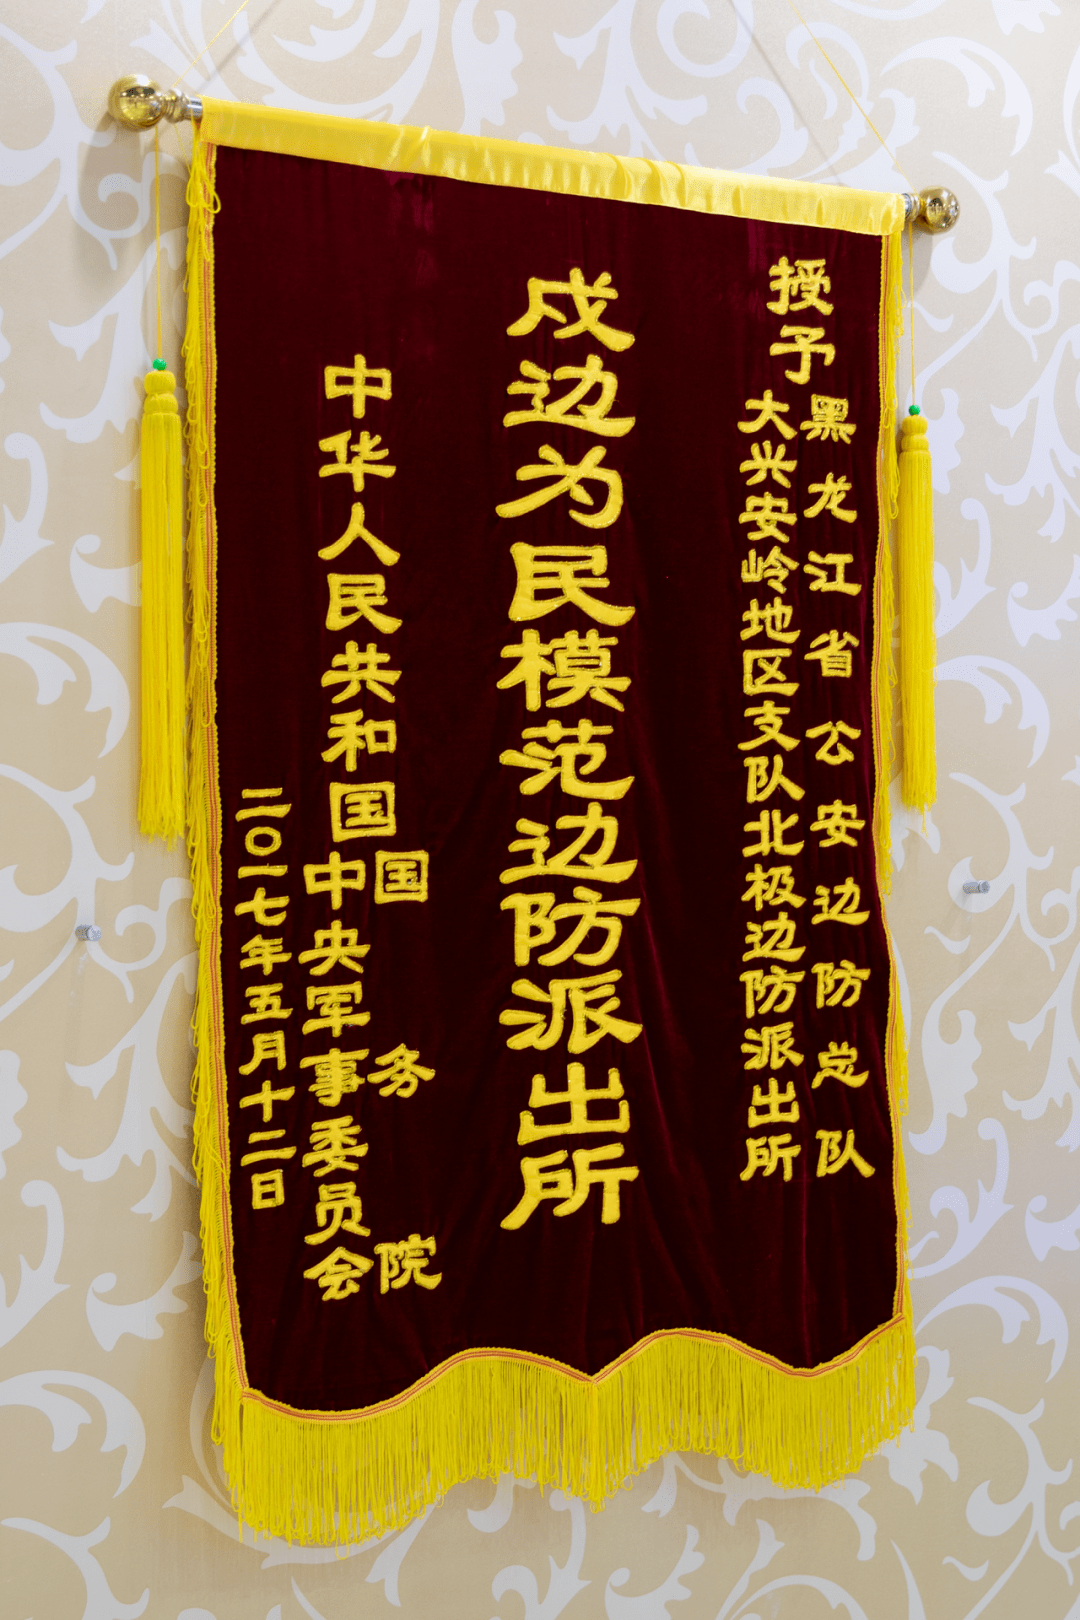 授予
黑龙江省公安边防总队
大兴安岭地区支队北极边防派出所
戍边为民模范边防派出所
中华人民共和国
国务院
中央军事委员会
二〇一七年五月十二日